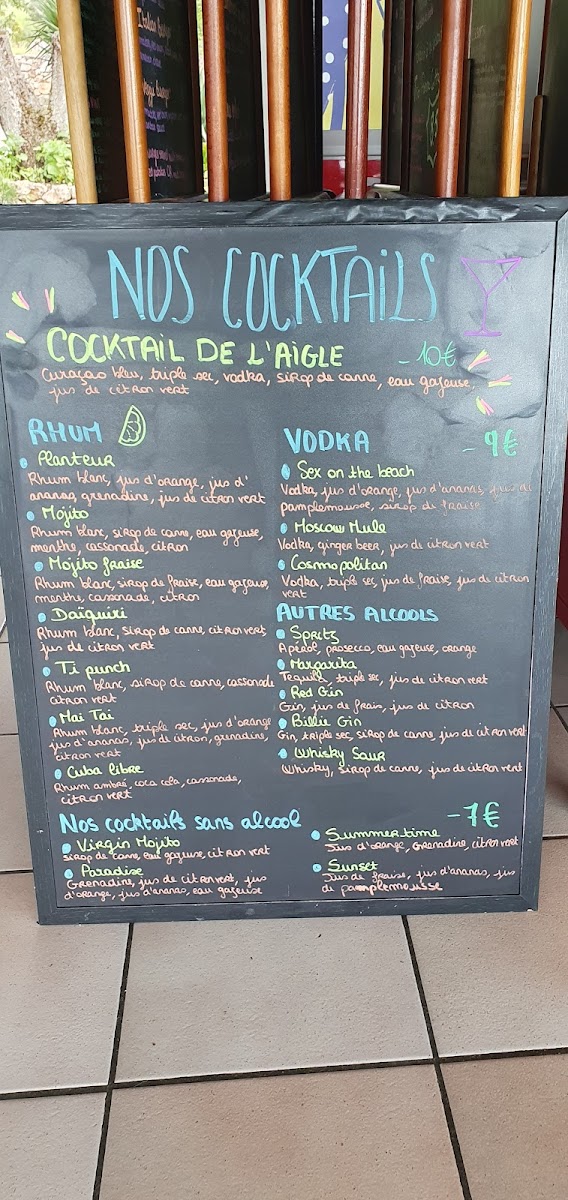 Italian Burger
NOS COCKTAiLS
COCKTAIL DE L'AIGLE - 10€
Curaçao bleu, triple sec, vodka, sirop de canne, eau gazeuse,
jus de citron vert
RHUM
Planteur
Rhum blanc, jus d'orange, jus d'
ananas, grenadine, jus de citron vert
Mojito
Rhum blanc, sirop de canne, eau gazeuse,
menthe, cassonade, citron
Mojito fraise
Rhum blanc, sirop de fraise, eau gazeuse,
menthe, cassonade, citron
Daïquiri
Rhum blanc, sirop de canne, citron vert,
jus de citron vert
Ti punch
Rhum blanc, sirop de canne, cassonade
citron vert
Mai Tai
Rhum blanc, triple sec, jus d'orange
jus d'ananas, jus de citron, grenadine,
citron vert
Cuba libre
Rhum ambré, coca cola, cassonade,
citron vert
VODKA - 9€
Sex on the beach
Vodka, jus d'orange, jus d'ananas, jus de
pamplemousse, sirop de fraise
Moscow Mule
Vodka, ginger beer, jus de citron vert
Cosmopolitan
Vodka, triple sec, jus de fraise, jus de citron
vert
AUTRES ALCOOLS
Spritz
Aperol, prosecco, eau gazeuse, orange
Margarita
Tequila, triple sec, jus de citron vert
Red Gin
Gin, jus de frais, jus de citron
Billie Gin
Gin, triple sec, sirop de canne, jus de citron vert
Whisky Sour
Whisky, sirop de canne, jus de citron vert
Nos cocktails sans alcool - 7€
Virgin Mojito
sirop de canne, eau gazeuse, citron vert
Paradise
Grenadine, jus de citron vert, jus
d'orange, jus d'ananas, eau gazeuse
Summertime
Jus d'orange, Grenadine, citron vert
Sunset
Jus de fraise, jus d'ananas, jus
de pamplemousse